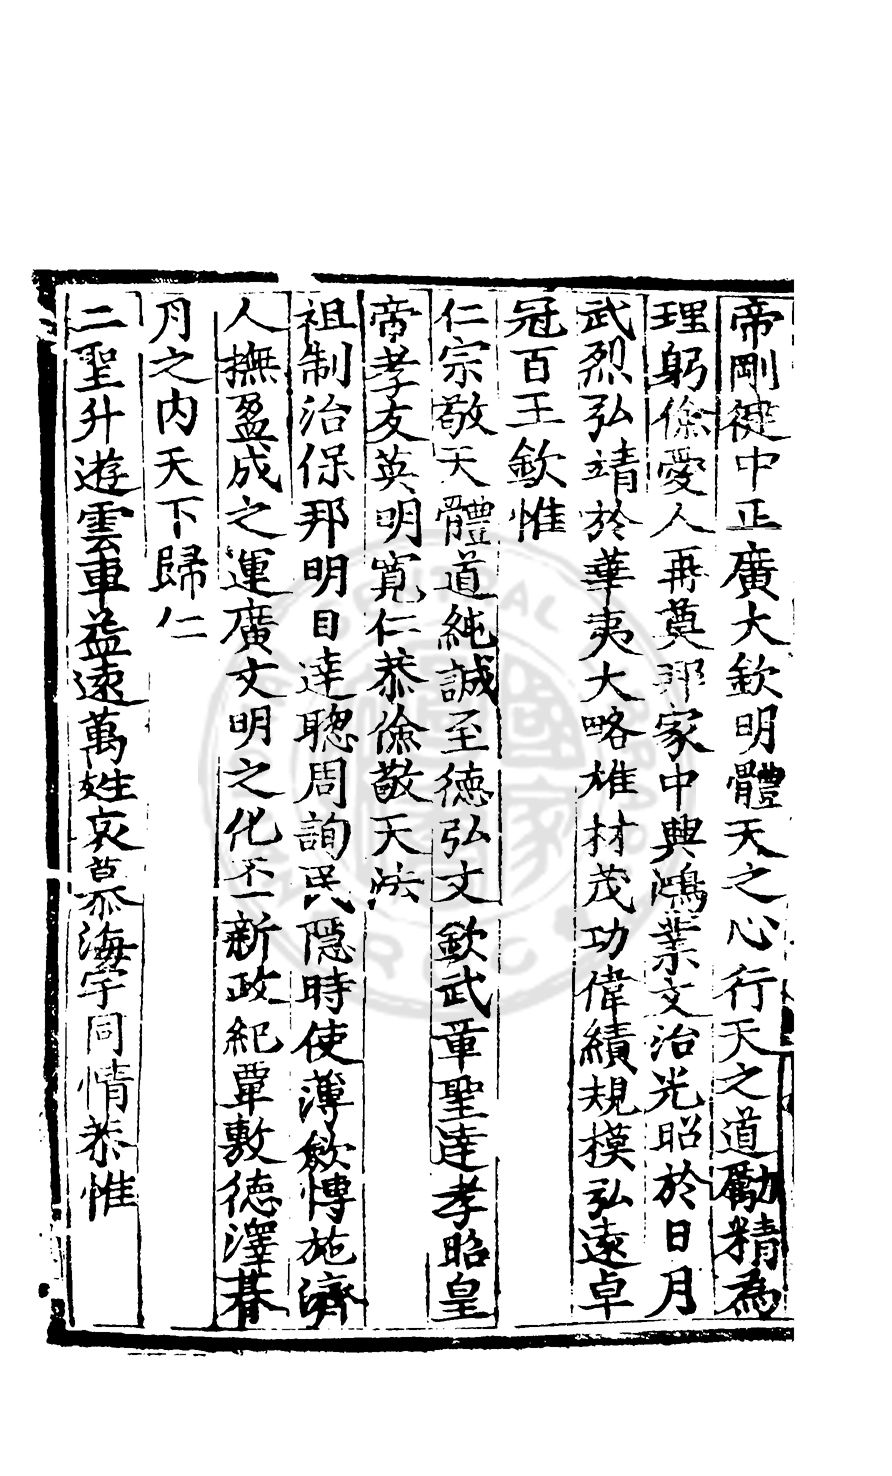 帝剛健中正廣大欽明體天之心行天之道勵精為
理躬儉愛人再奠邦家中興鴻業文治光昭於日月
武烈弘靖於華夷大略雄材茂功偉績規模弘遠卓
冠百王欽惟
仁宗敬天體道純誠至德弘文欽武章聖達孝昭皇
帝孝友英明寬仁恭儉敬天法
祖制治保邦明目達聰周詢民隱時使薄斂愽施濟
人撫盈成之運廣文明之化丕新政紀覃敷德澤朞
月之內天下歸仁
二聖升遊雲車益遠萬姓哀慕海宇同情恭惟